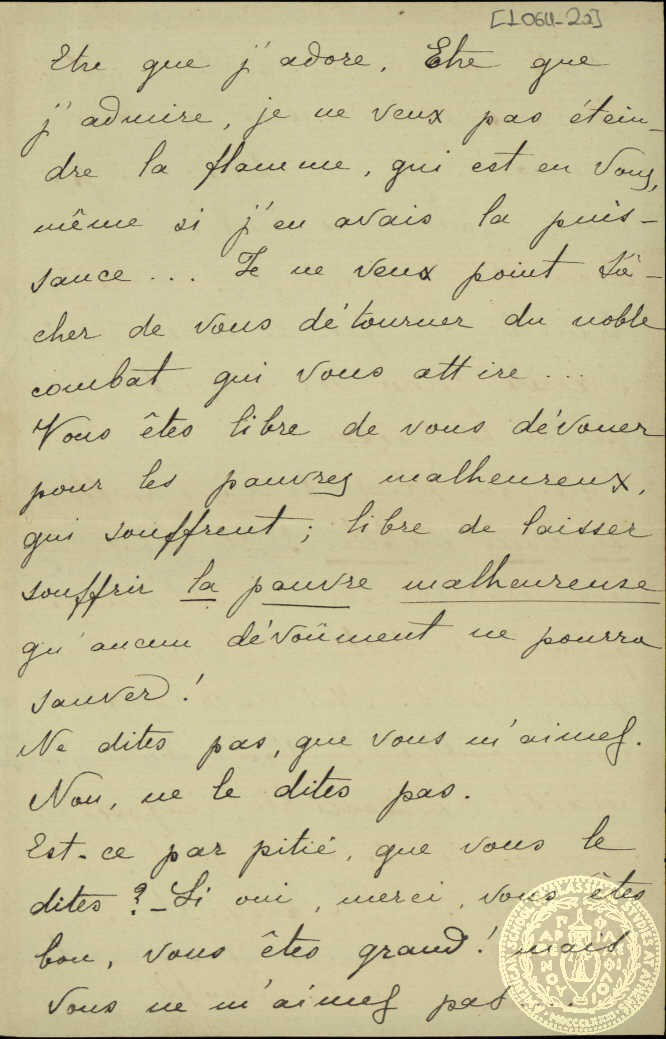 [1064-22]
Etre que j'adore, Etre que
j'admire, je ne veux pas étein-
dre la flamme, qui est en Vous,
même si j'en avais la puis-
sance... Je ne veux point tâ-
cher de vous détourner du noble
combat qui vous attire...
Vous êtes libre de vous dévouer
pour les pauvres malheureux,
qui souffrent; libre de laisser
souffrir la pauvre malheureuse
qu'aucun dévoûment ne pourra
sauver!
Ne dites pas, que vous m'aimez.
Non, ne le dites pas.
Est-ce par pitié, que vous le
dites? - Si oui, merci, vous êtes
bon, vous êtes grand! mais
vous ne m'aimez pas...
AMERICAN SCHOOL OF CLASSICAL STUDIES AT ATHENS
MDCCCLXXXI